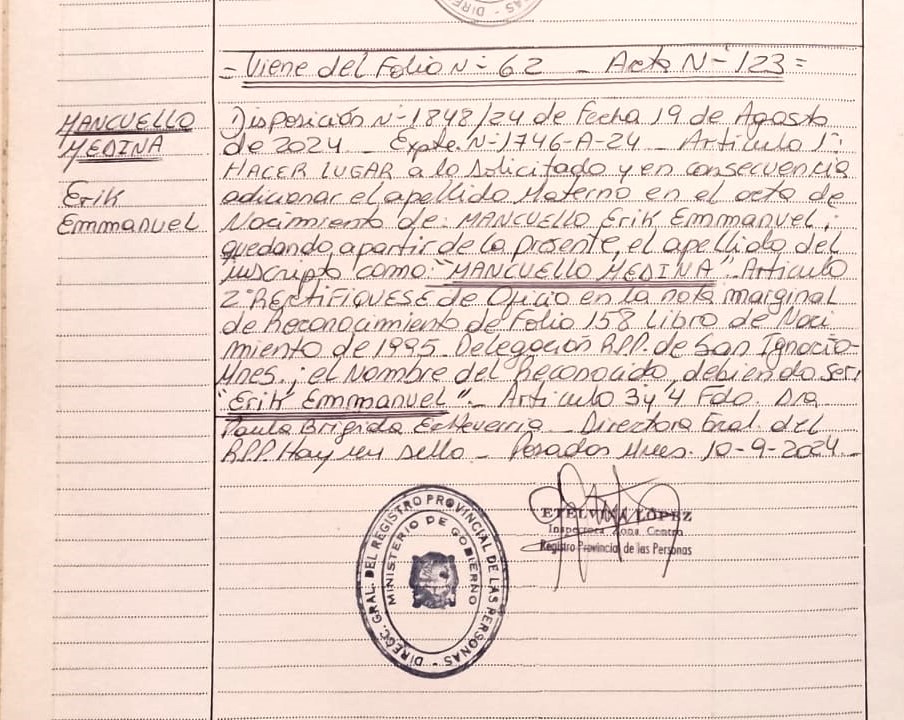 = Viene del Folio Nº 62 _ Acta Nº 123 =
MANCUELLO
MEDINA
Erik
Emmanuel
Disposición Nº 1848/24 de Fecha 19 de Agosto
de 2024 _ Expte. Nº 1746-A-24 _ Artículo 1º:
HACER LUGAR a lo solicitado y en consecuencia
adicionar el apellido Materno en el acta de
Nacimiento de: MANCUELLO Erik Emmanuel;
quedando a partir de la presente, el apellido del
suscripto como: "MANCUELLO MEDINA". Artículo
2º RECTIFIQUESE de Oficio en la nota marginal
de Reconocimiento de Folio 158 Libro de Naci
miento de 1995. Delegación RPP. de San Ignacio-
Mnes.; el Nombre del Reconocido, debiendo ser:
"Erik Emmanuel"._ Artículo 3 y 4 Fdo. Dra
Paula Brigida Echeverria _ Directora Gral. del
RPP. Hay un sello _ Posadas Mnes. 10-9-2024._
ETELVINA LOPEZ
Inspectora Zona Centro
Registro Provincial de las Personas
DIRECC. GRAL. DEL REGISTRO PROVINCIAL DE LAS PERSONAS -
MINISTERIO DE GOBIERNO